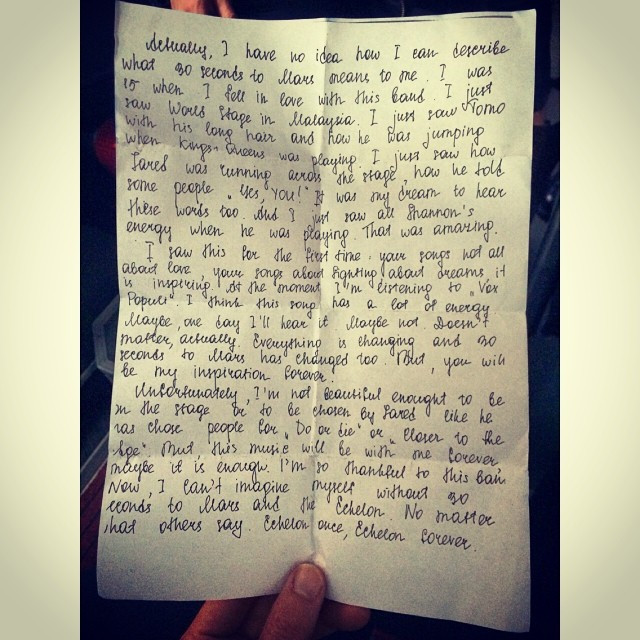 Actually, I have no idea how I can describe
what 30 seconds to Mars means to me. I was
15 when I fell in love with this band. I just
saw World Stage in Malaysia. I just saw Tomo
with his long hair and how he was jumping
when Kings+Queens was playing. I just saw how
Jared was running across the stage, how he told
some people „Yes, you!" It was my dream to hear
these words too. And I just saw all Shannon's
energy when he was playing. That was amazing.
I saw this for the first time: your songs not all
about love, your songs about fighting about dreams, it
is inspiring. At the moment I'm listening to „Vox
Populi". I think this song has a lot of energy.
Maybe, one day I'll hear it. Maybe not. Doesn't
matter, actually. Everything is changing and 30
seconds to Mars has changed too. But, you will
be my inspiration forever.
Unfortunately, I'm not beautiful enought to be
on the stage or to be chosen by Jared like he
has chose people for „Do or die" or „Closer to the
edge". But, this music will be with me forever
maybe it is enough. I'm so thankful to this ban
Now, I can't imagine myself without 30
econds to Mars and the Echelon. No matter
hat others say. Echelon once, Echelon forever.